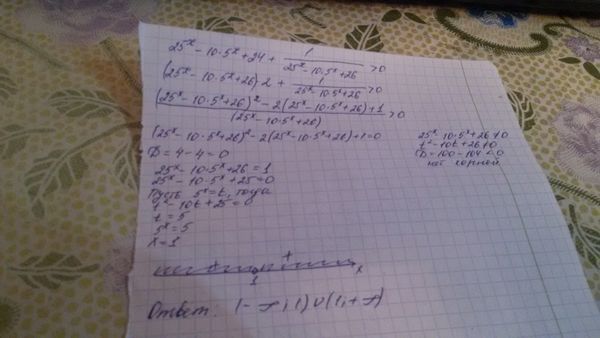 25ˣ - 10·5ˣ + 24 + 1/(25ˣ - 10·5ˣ + 26) > 0
(25ˣ - 10·5ˣ + 26) - 2 + 1/(25ˣ - 10·5ˣ + 26) > 0
((25ˣ - 10·5ˣ + 26)² - 2(25ˣ - 10·5ˣ + 26) + 1)/(25ˣ - 10·5ˣ + 26) > 0
(25ˣ - 10·5ˣ + 26)² - 2(25ˣ - 10·5ˣ + 26) + 1 = 0
D = 4 - 4 = 0
25ˣ - 10·5ˣ + 26 = 1
25ˣ - 10·5ˣ + 25 = 0
Пусть 5ˣ = t, тогда
t² - 10t + 25 = 0
t = 5
5ˣ = 5
x = 1
25ˣ - 10·5ˣ + 26 ≠ 0
t² - 10t + 26 ≠ 0
D = 100 - 104 < 0
нет корней
+ +
1 x
Ответ: (-∞; 1) ∪ (1; +∞)